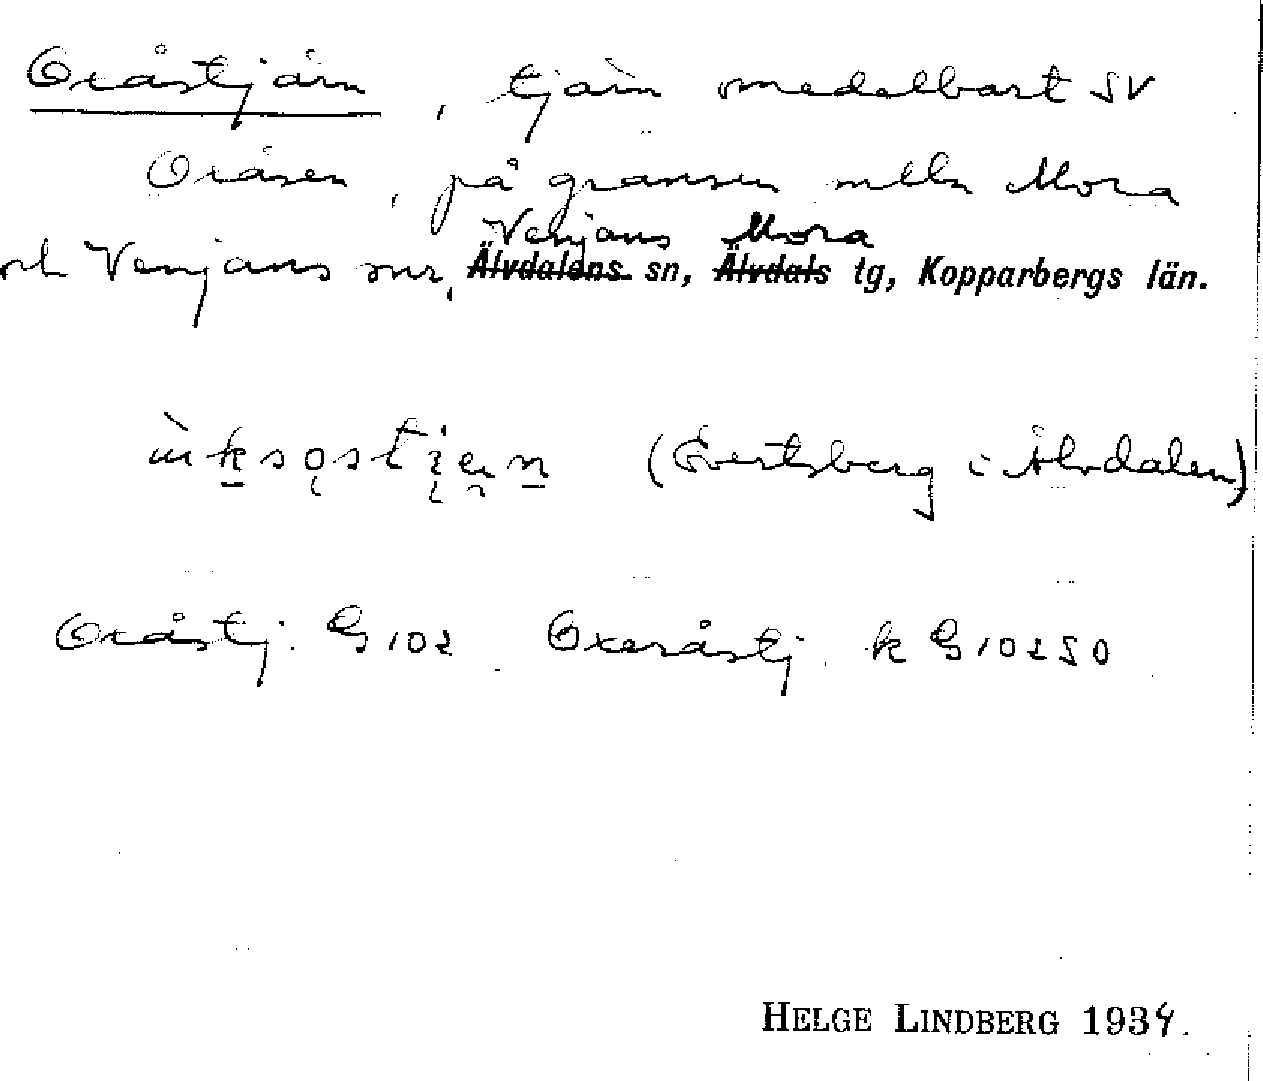 Oxåstjärn, tjärn omedelbart SV
Oxåsen, på gränsen mlln Mora
Venjans Mora
och Venjans snr, Älvdalens sn, Älvdals tg, Kopparbergs län.
(Evertsberg i Älvdalen)
Oxåstj. G 102 Oxeråstj. k G 10250
HELGE LINDBERG 1934.